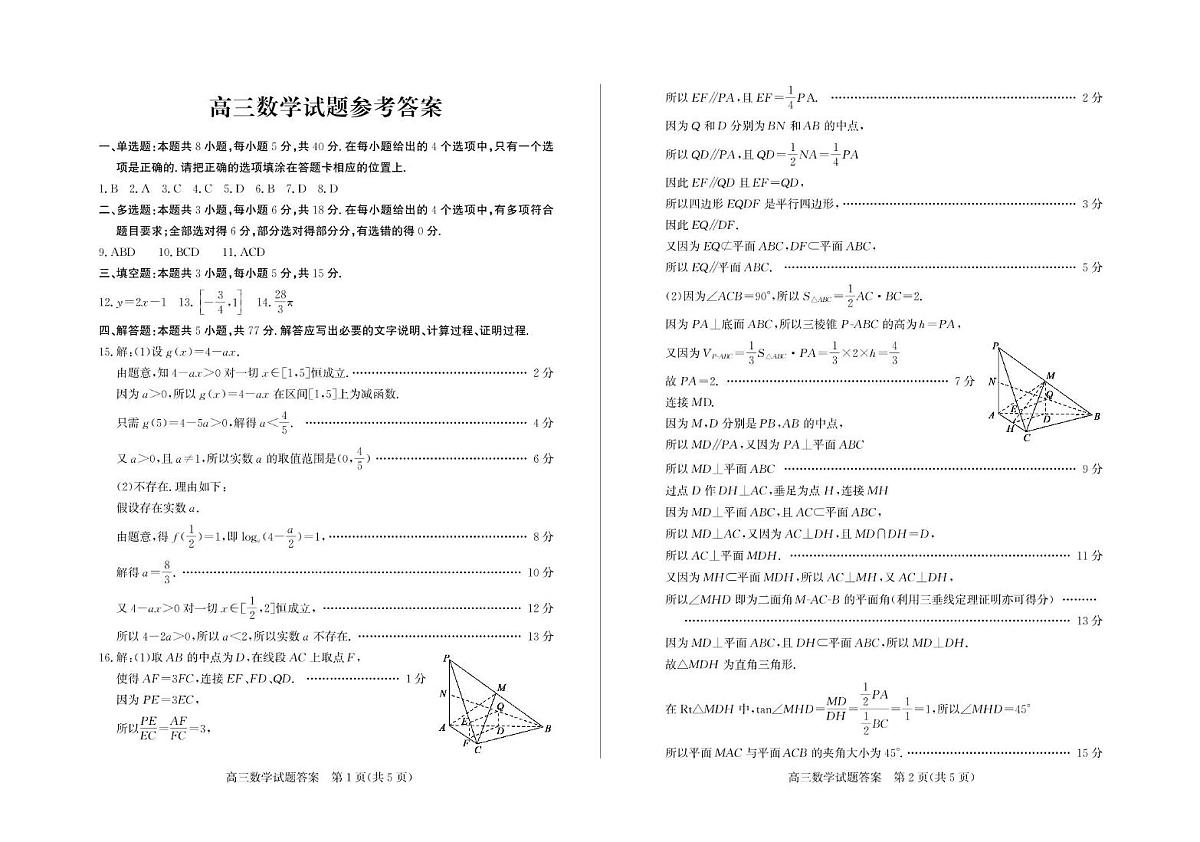 高三数学试题参考答案
一、单选题:本题共 8 小题,每小题 5 分,共 40 分. 在每小题给出的 4 个选项中,只有一个选
项是正确的. 请把正确的选项填涂在答题卡相应的位置上.
1. B 2. A 3. C 4. C 5. D 6. B 7. D 8. D
二、多选题:本题共 3 小题,每小题 6 分,共 18 分. 在每小题给出的 4 个选项中,有多项符合
题目要求;全部选对得 6 分,部分选对得部分分,有选错的得 0 分.
9. ABD 10. BCD 11. ACD
三、填空题:本题共 3 小题,每小题 5 分,共 15 分.
12. y=2x−1 13. [−3/4,1] 14. 28/3π
四、解答题:本题共 5 小题,共 77 分. 解答应写出必要的文字说明、计算过程、证明过程.
15. 解:(1)设 g(x)=4−ax.
由题意,知 4−ax>0 对一切 x∈[1,5]恒成立. …… 2 分
因为 a>0,所以 g(x)=4−ax 在区间[1,5]上为减函数.
只需 g(5)=4−5a>0,解得 a<4/5. …… 4 分
又 a>0,且 a≠1,所以实数 a 的取值范围是(0,4/5) …… 6 分
(2)不存在. 理由如下:
假设存在实数 a.
由题意,得 f(1/2)=1,即 logₐ(4−a/2)=1, …… 8 分
解得 a=8/3. …… 10 分
又 4−ax>0 对一切 x∈[1/2,2]恒成立, …… 12 分
所以 4−2a>0,所以 a<2,所以实数 a 不存在. …… 13 分
16. 解:(1)取 AB 的中点为 D,在线段 AC 上取点 F,
使得 AF=3FC,连接 EF、FD、QD. …… 1 分
因为 PE=3EC,
所以PE/EC=AF/FC=3,
P
M
N
Q
E
A
D
B
F
C
高三数学试题答案 第 1 页(共 5 页)
所以 EF∥PA,且 EF=1/4PA. …… 2 分
因为 Q 和 D 分别为 BN 和 AB 的中点,
所以 QD∥PA,且 QD=1/2NA=1/4PA
因此 EF∥QD 且 EF=QD,
所以四边形 EQDF 是平行四边形, …… 3 分
因此 EQ∥DF.
又因为 EQ⊄平面 ABC,DF⊂平面 ABC,
所以 EQ∥平面 ABC. …… 5 分
(2)因为∠ACB=90°,所以 S△ABC=1/2AC·BC=2.
因为 PA⊥底面 ABC,所以三棱锥 P-ABC 的高为 h=PA,
又因为 V_P-ABC=1/3S△ABC·PA=1/3×2×h=4/3
故 PA=2. …… 7 分
连接 MD.
因为 M,D 分别是 PB,AB 的中点,
所以 MD∥PA,又因为 PA⊥平面 ABC
P
M
N
Q
A
E
D
B
H
C
所以 MD⊥平面 ABC …… 9 分
过点 D 作 DH⊥AC,垂足为点 H,连接 MH
因为 MD⊥平面 ABC,且 AC⊂平面 ABC,
所以 MD⊥AC,又因为 AC⊥DH,且 MD∩DH=D,
所以 AC⊥平面 MDH. …… 11 分
又因为 MH⊂平面 MDH,所以 AC⊥MH,又 AC⊥DH,
所以∠MHD 即为二面角 M-AC-B 的平面角(利用三垂线定理证明亦可得分) ………
…… 13 分
因为 MD⊥平面 ABC,且 DH⊂平面 ABC,所以 MD⊥DH.
故△MDH 为直角三角形.
在 Rt△MDH 中,tan∠MHD=MD/DH=(1/2PA)/(1/2BC)=1/1=1,所以∠MHD=45°
所以平面 MAC 与平面 ACB 的夹角大小为 45°. …… 15 分
高三数学试题答案 第 2 页(共 5 页)